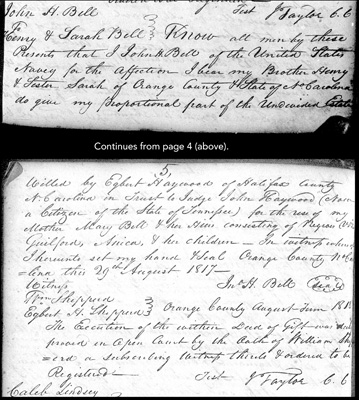 John H. Bell
Test J Taylor C. C
To
Henry & Sarah Bell } Know all men by these
Presents that I John H. Bell of the United States
Navey for the affection I bear my Brother Henry
& Sister Sarah of Orange County & State of No Carolina
do give my proportional part of the Undivided Estate
Continues from page 4 (above).
5
Willed by Egbert Haywood of Halifax County
N. Carolina in Trust to Judge John Haywood (Now
a Citizen of the State of Tennessee) for the use of my
Mother Mary Bell & her Heirs consisting of Negroes
Guilford, Amica, & her children - In witness whereof
I hereunto set my hand & Seal Orange County No Ca
=lina this 29th August 1817
Witness
Jno H. Bell Seal
Wm Shepperd
Egbert H. Shepperd } Orange County August Term 181
The Execution of the within Deed of Gift was
proved in Open Court by the Oath of William She
=erd a subscribing Witness thereto & ordered to be
Registered
Test J Taylor C. C
Caleb Lindsey